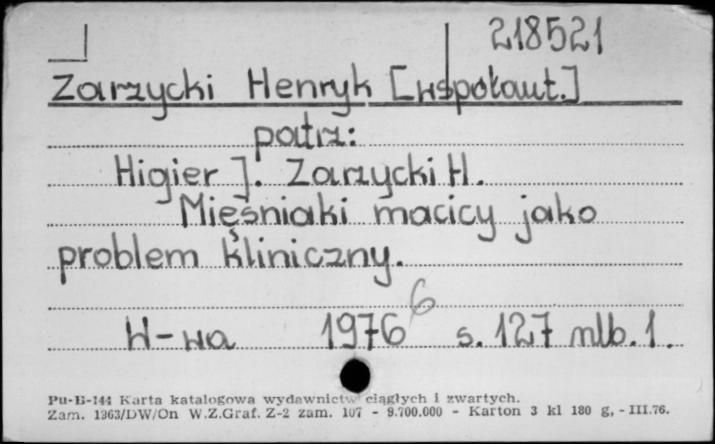 218521
Zarzycki Henryk [współaut.]
patrz:
Higier J. Zarzycki H.
Mięśniaki macicy jako
problem kliniczny.
6
W-wa 1976 s. 127 nlb. 1.
Pu-B-144 Karta katalogowa wydawnictw ciągłych i zwartych.
Zam. 1363/DW/On W.Z.Graf. Z-2 zam. 107 - 9.700.000 - Karton 3 kl 180 g, - III.76.